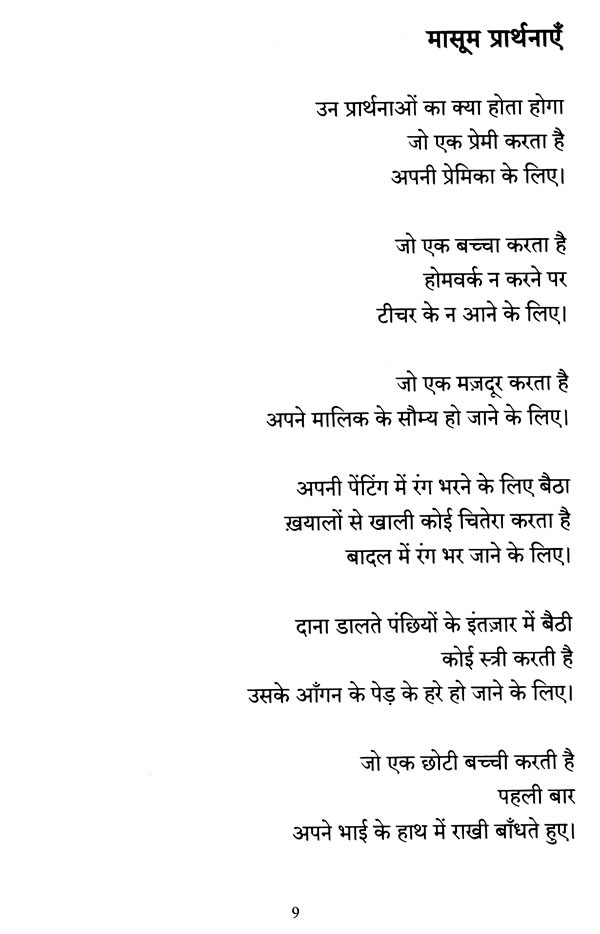 मासूम प्रार्थनाएँ
उन प्रार्थनाओं का क्या होता होगा
जो एक प्रेमी करता है
अपनी प्रेमिका के लिए।
जो एक बच्चा करता है
होमवर्क न करने पर
टीचर के न आने के लिए।
जो एक मज़दूर करता है
अपने मालिक के सौम्य हो जाने के लिए।
अपनी पेंटिंग में रंग भरने के लिए बैठा
ख़यालों से खाली कोई चितेरा करता है
बादल में रंग भर जाने के लिए।
दाना डालते पंछियों के इंतज़ार में बैठी
कोई स्त्री करती है
उसके आँगन के पेड़ के हरे हो जाने के लिए।
जो एक छोटी बच्ची करती है
पहली बार
अपने भाई के हाथ में राखी बाँधते हुए।
9